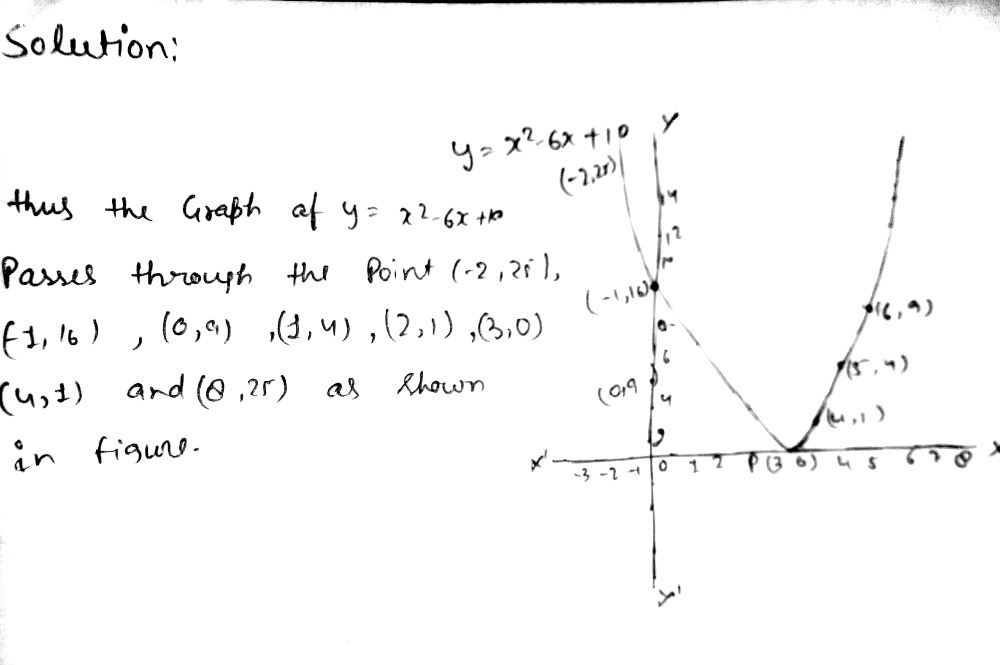 Solution:
y = x²-6x+10
(-2,25)
thus the Graph of y = x²-6x+10
Passes through the Point (-2,25),
(-1,16), (0,9), (1,4), (2,1), (3,0)
(4,1) and (8,25) as shown
in figure.
Y
14
12
(-1,16)
8
(6,9)
6
(5,4)
(0,9
4
(4,1)
2
X' -3 -2 -1 0 1 2 P(3 0) 4 5 6 7 8 X
Y'